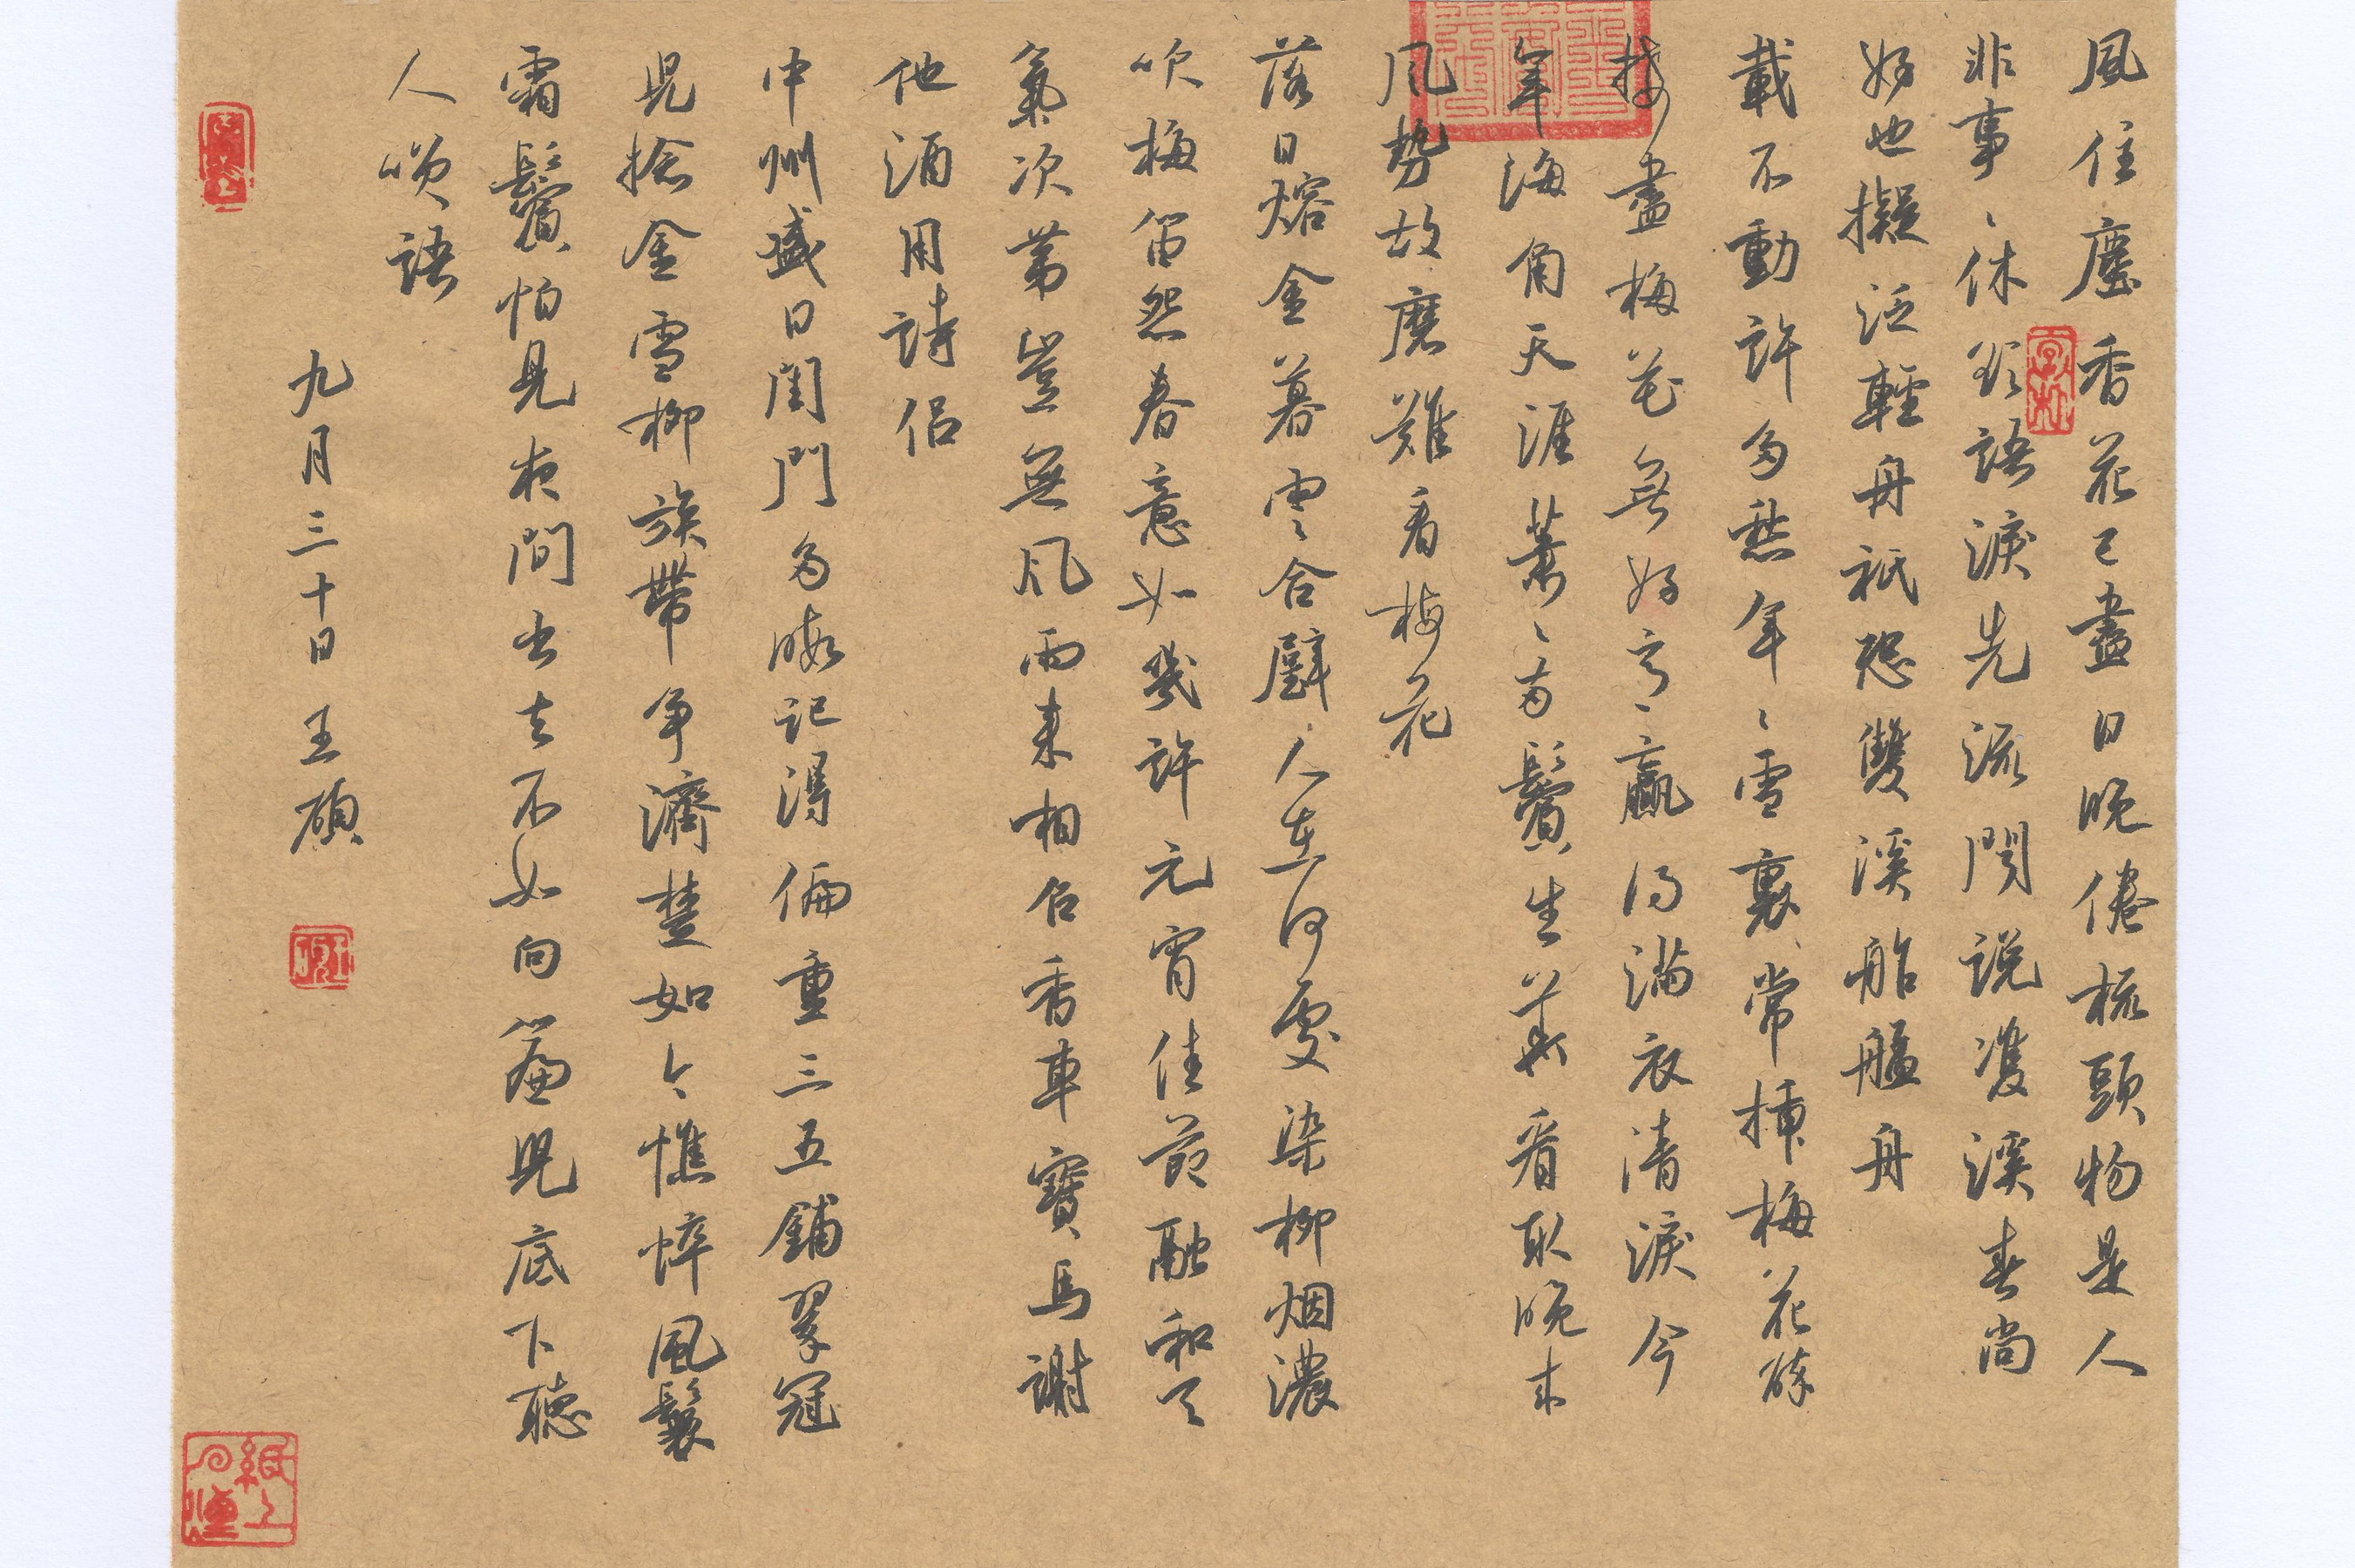 風住塵香花已盡日晚倦梳頭物是人
非事〻休欲語淚先流聞說雙溪春尚
好也擬泛輕舟祇恐雙溪舴艋舟
載不動許多愁年〻雪裏常插梅花醉
挼盡梅花無好意贏得滿衣清淚今
年海角天涯蕭〻兩鬢生華看取晚來
風勢故應難看梅花
落日熔金暮雲合璧人在何處染柳烟濃
吹梅笛怨春意知幾許元宵佳節融和天
氣次第豈無風雨來相召香車寶馬謝
他酒朋詩侶
中州盛日閨門多暇記得偏重三五鋪翠冠
兒捻金雪柳簇帶爭濟楚如今憔悴風鬟
霜鬢怕見夜間出去不如向簾兒底下聽
人笑語
九月三十日 王碩